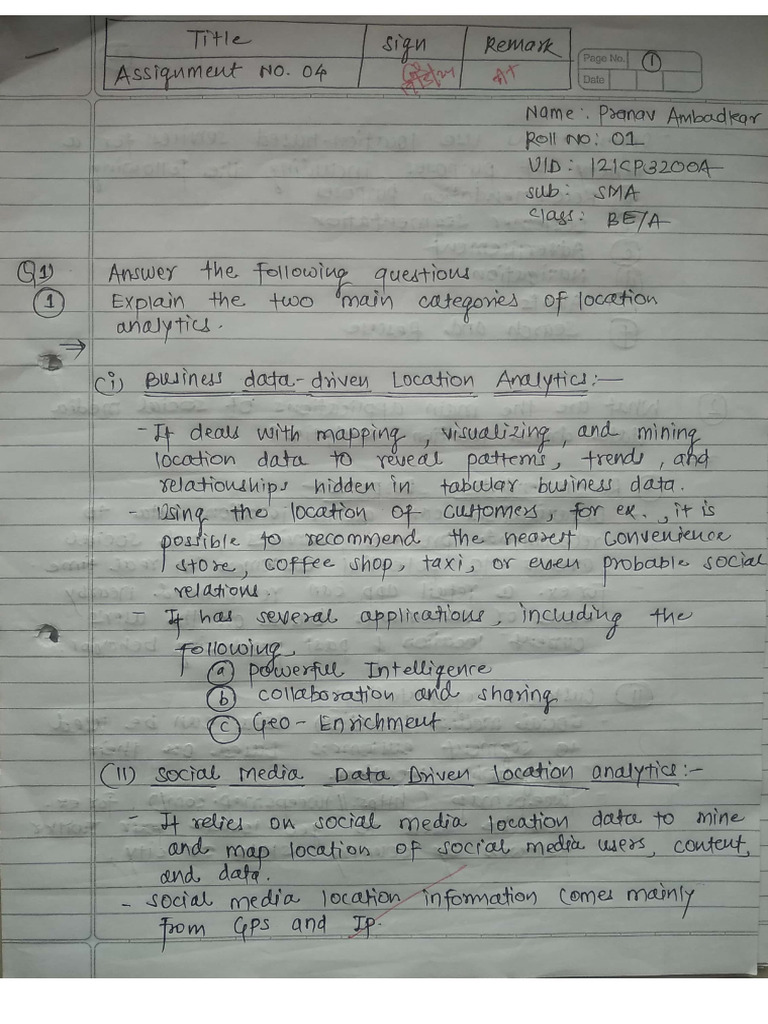 Title Sign Remark
Assignment NO. 04 A+
Page No. 1
Date
Name: Pranav Ambadkar
Roll NO: 01
VID: 121CP3200A
Sub: SMA
Class: BE/A
Q1) Answer the following questions
1 Explain the two main categories of location
analytics.
→
(i) Business data-driven Location Analytics:-
- It deals with mapping, visualizing, and mining
location data to reveal patterns, trends, and
relationships hidden in tabular business data.
- Using the location of customers, for ex., it is
possible to recommend the nearest convenience
store, coffee shop, taxi, or even probable social
relations.
- It has several applications, including the
following,
a Powerful Intelligence
b Collaboration and sharing
c Geo-Enrichment.
(II) Social Media Data Driven location analytics:-
- It relies on social media location data to mine
and map location of social media users, content,
and data.
- Social media location information comes mainly
from GPS and IP.